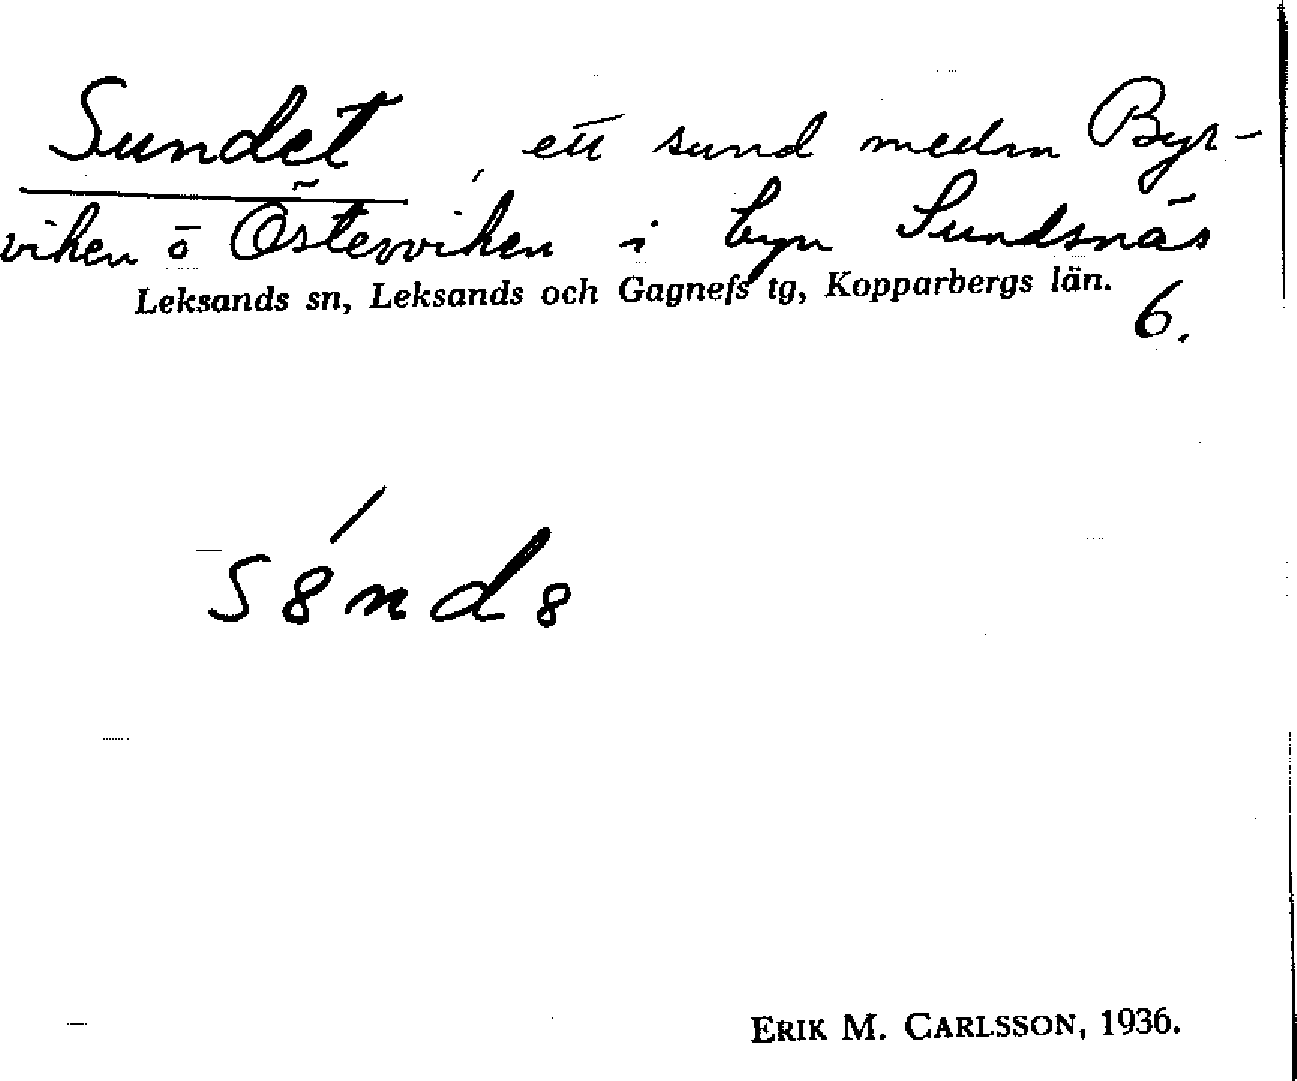 Sundet, ett sund mellan Byr-
viken o Österviken i byn Sundsnäs
Leksands sn, Leksands och Gagnefs tg, Kopparbergs län.
6.
ERIK M. CARLSSON, 1936.